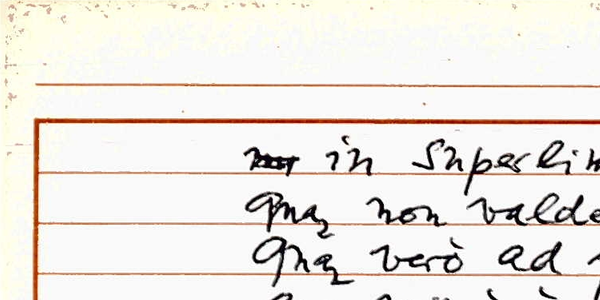 in Superlim
Quæ non valde
Quæ verò ad